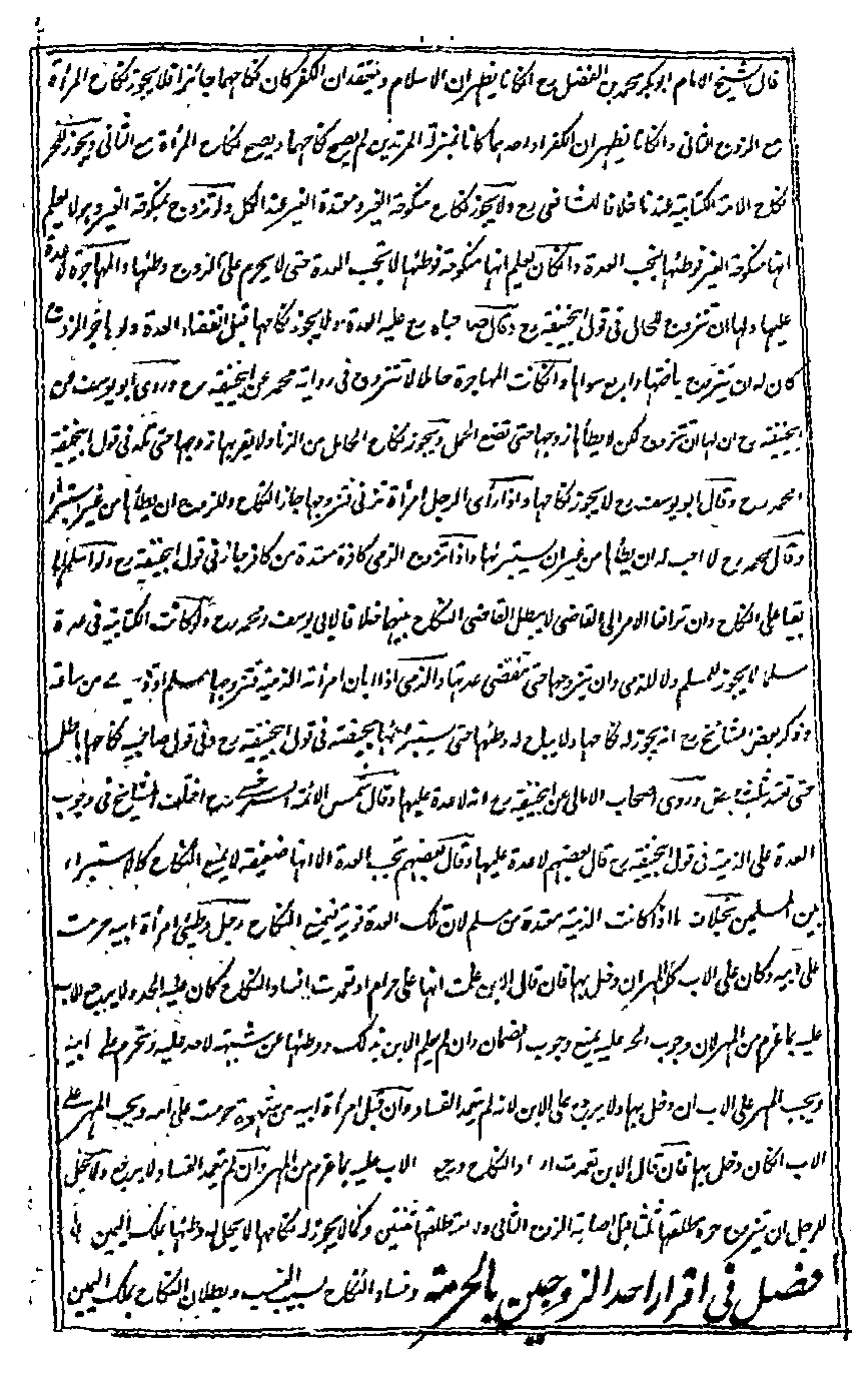 قال الشيخ الامام ابو بكر محمد بن الفضل رح ان كانا يظهران الاسلام ويعتقدان الكفر كان نكاحهما جائزا فلا يجوز نكاح المرأة
مع الزوج الثانى وان كانا يظهران الكفر او احدهما كانا بمنزلة المرتدين لم يصح نكاحهما ويصح نكاح المرأة مع الثانى ويجوز للحر
نكاح الامة الكتابية عندنا خلافا للشافعى رح ولا يجوز نكاح منكوحة الغير ومعتدة الغير عند الكل ولو تزوج بمنكوحة الغير وهو لا يعلم
انها منكوحة الغير فوطئها تجب العدة وان كان يعلم انها منكوحة فوطئها لا تجب العدة حتى لا يحرم على الزوج وطئها والمهاجرة لا عدة
عليها ولها ان تتزوج للحال فى قول ابيحنيفة رح وقال صاحباه رح عليها العدة ولا يجوز نكاحها قبل انقضاء العدة ولو هاجر الزوج
كان له ان يتزوج باختها واربع سواها وان كانت المهاجرة حاملا لا تتزوج فى رواية محمد عن ابيحنيفة رح وروى ابو يوسف عن
ابيحنيفة رح ان لها ان تتزوج لكن لا يطأها زوجها حتى تضع الحمل ويجوز نكاح الحامل من الزنا ولا يقربها زوجها حتى تلد فى قول ابيحنيفة
ومحمد رح وقال ابو يوسف رح لا يجوز نكاحها واذا رأى الرجل امرأة تزنى فتزوجها جاز النكاح وللزوج ان يطأها من غير استبراء
وقال محمد رح لا احب له ان يطأها من غير ان يستبرئها واذا تزوج الذمى كافرة معتدة من كافر جاز فى قول ابيحنيفة رح ولو اسلما
بقيا على النكاح وان ترافعا الامر الى القاضى لا يبطل القاضى النكاح بينهما خلافا لابى يوسف ومحمد رح ولو كانت الكتابية فى عدة
مسلم لا يجوز للمسلم ولا للذمى ان يتزوجها حتى تنقضى عدتها والذمى اذا ابان امرأته الذمية فتزوجها مسلم او ذمى من ساعته
ذكر بعض المشائخ رح انه يجوز له نكاحها ولا يباح له وطئها حتى يستبرئها بحيضة فى قول ابيحنيفة رح وفى قول صاحبيه نكاحها باطل
حتى تعتد بثلث حيض وروى اصحاب الامالى عن ابيحنيفة رح انه لا عدة عليها وقال شمس الائمة السرخسى رح اختلف المشائخ فى وجوب
العدة على الذمية فى قول ابيحنيفة رح قال بعضهم لا عدة عليها وقال بعضهم تجب العدة الا انها ضعيفة لا يمنع النكاح كالاستبراء
بين المسلمين بخلاف ما اذا كانت الذمية معتدة من مسلم لان تلك العدة قوية فيمنع النكاح رجل وطئ امرأة ابيه حرمت
على ابيه وكان على الاب كل المهر ان دخل بها فان قال الابن علمت انها على حرام او تعمدت افساد النكاح كان عليه الحد ولا يرجع الاب
عليه بما غرم من المهر لان وجوب الحد عليه يمنع وجوب الضمان وان لم يعلم الابن بذلك ووطئها عن شبهة لا حد عليه وتحرم على ابيه
ويجب المهر على الاب ان دخل بها ولا يرجع على الابن لانه لم يتعمد الفساد وان قبل امرأة ابيه من شهوة حرمت على ابيه ويجب المهر على
الاب ان كان دخل بها فان قال الابن تعمدت النكاح رجع الاب عليه بما غرم من المهر وان لم يتعمد الفساد لا يرجع ولا يحل
للرجل ان يتزوج حرة طلقها ثلثا قبل اصابة الزوج الثانى وامة طلقها ثنتين وكما لا يجوز له نكاحها لا يحل له وطئها بملك اليمين
فصل فى اقرار احد الزوجين بالحرمة وفساد النكاح بسبب النسب وبطلان النكاح بملك اليمين